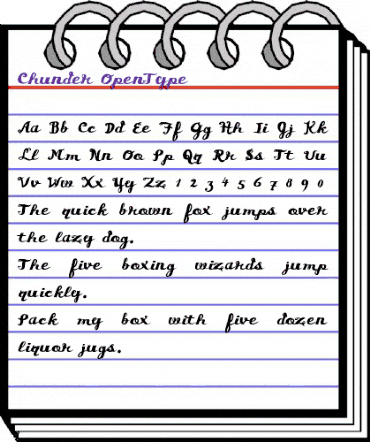 Chunder OpenType
Aa Bb Cc Dd Ee Ff Gg Hh Ii Jj Kk
Ll Mm Nn Oo Pp Qq Rr Ss Tt Uu
Vv Ww Xx Yy Zz 1 2 3 4 5 6 7 8 9 0
The quick brown fox jumps over
the lazy dog.
The five boxing wizards jump
quickly.
Pack my box with five dozen
liquor jugs.